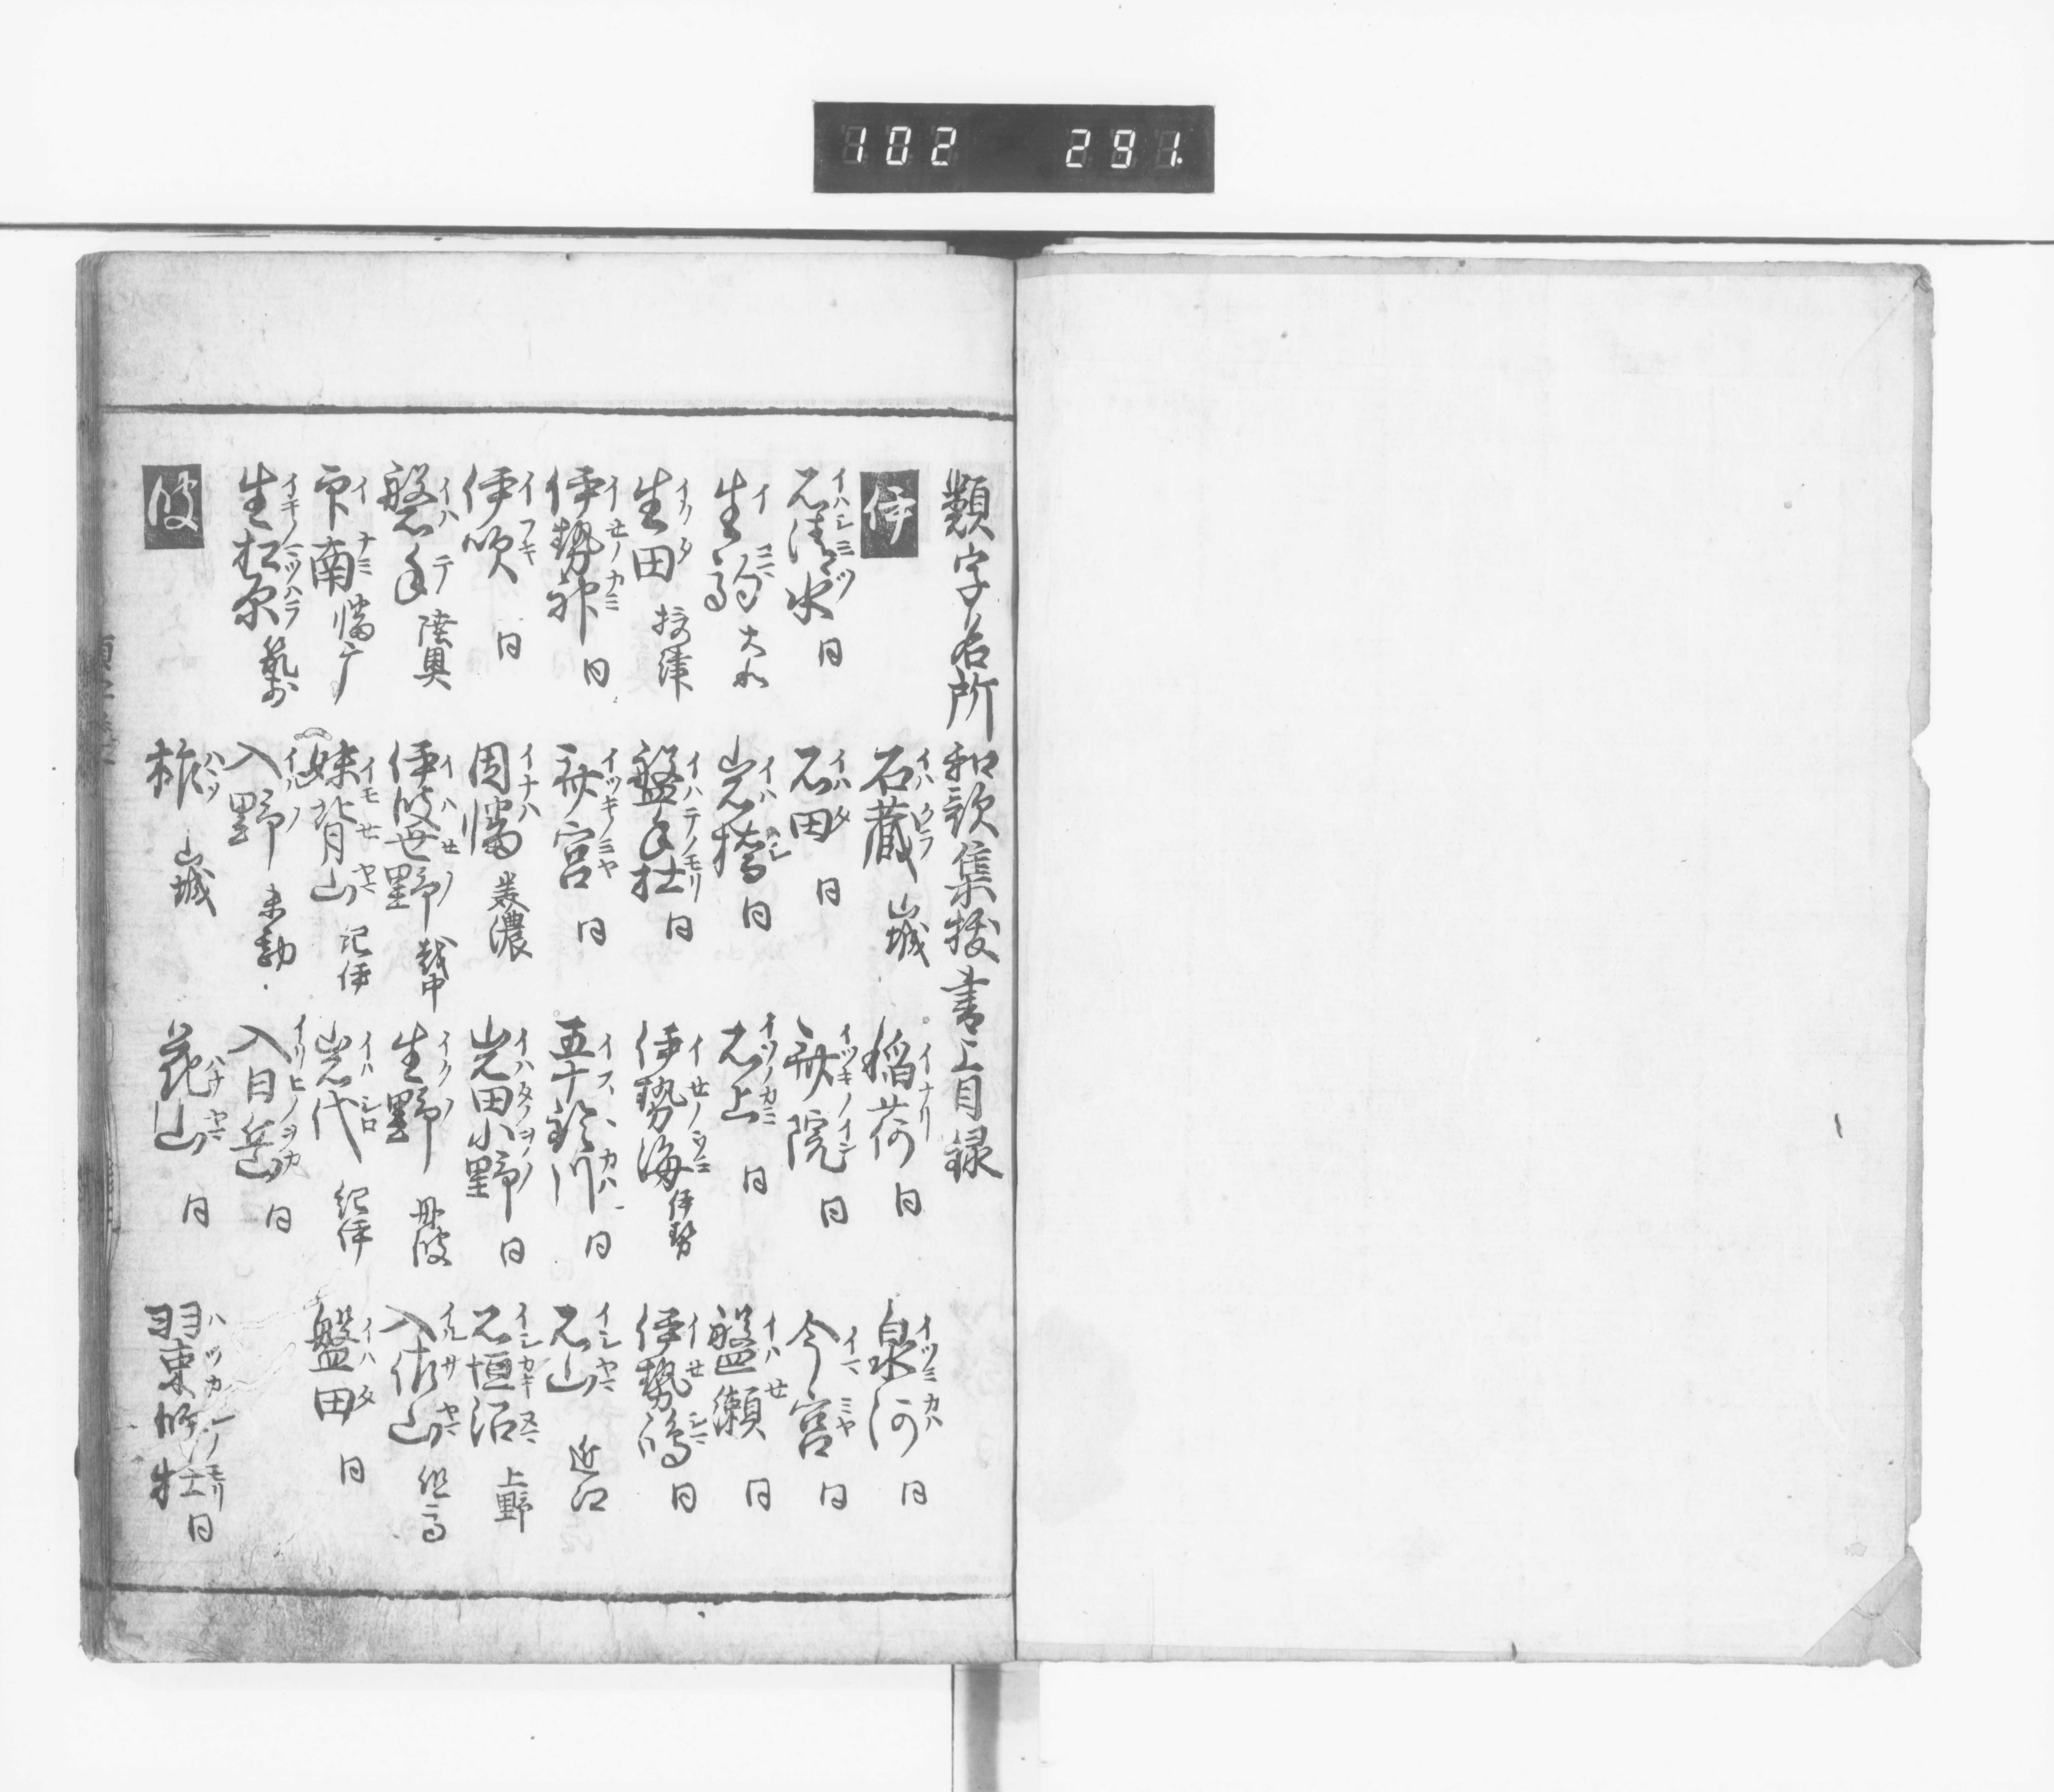 102 291.
類字名所和歌集抜書上目録
伊 石蔵 山城 稲荷 同 泉河 同
石清水 同 石田 同 斎院 同 今宮 同
生駒 大和 岩橋 同 石上 同 磐瀬 同
生田 摂津 磐手杜 同 伊勢海 伊勢 伊勢嶋 同
伊勢神 同 斎宮 同 五十鈴川 同 石山 近江
伊吹 同 因幡 美濃 岩田小野 同 石垣沼 上野
磐手 陸奥 伊波世野 越中 生野 丹波 入佐山 但马
印南 幡广 妹背山 紀伊 岩代 紀伊 磐田 同
生松原 筑前 入野 未勘 入日岳 同
波 柞 山城 花山 同 羽束師杜 同